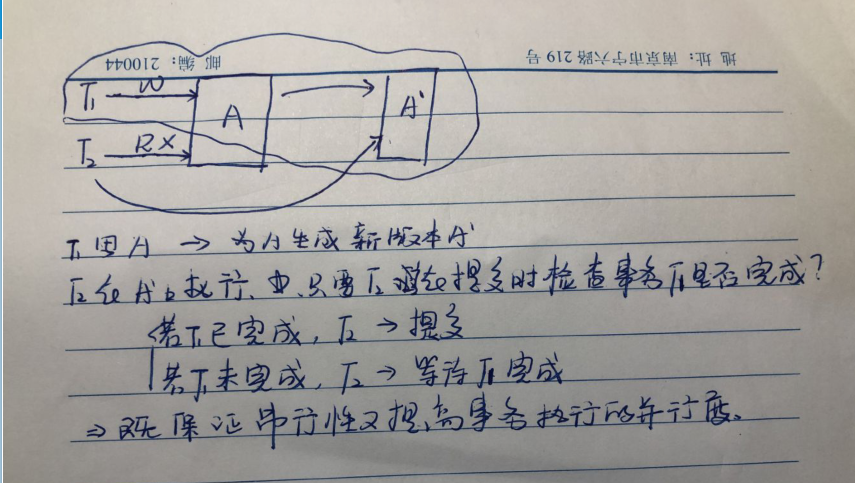 地址：南京市宁六路219号
邮编：210044
T₁ W A A'
T₂ RX
T₁ 因 A → 为A生成新版本A'
T₂在A'上执行、也只需T₂在提交时检查事务T₁是否完成？
若T₁已完成，T₂ → 提交
若T₁未完成，T₂ → 等待T₁完成
⇒ 既保证串行性又提高事务执行的并行度。